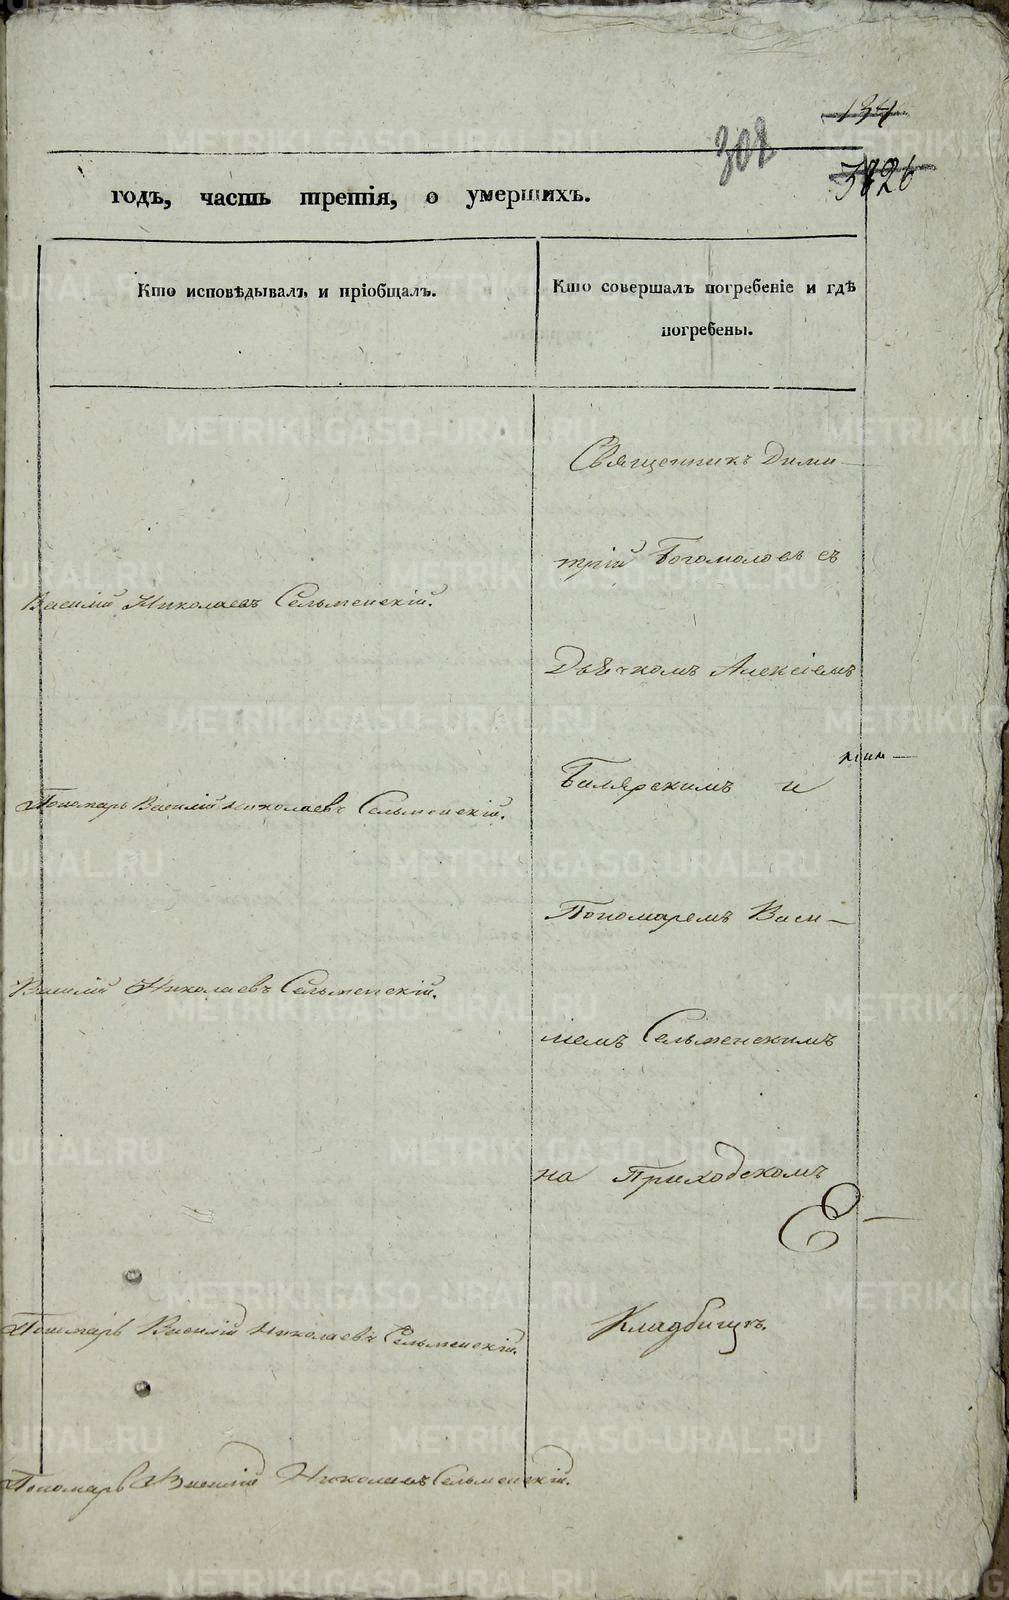 134
302
3826
годъ, часть третія, о умершихъ.
Кто исповѣдывалъ и пріобщалъ.
Кто совершалъ погребеніе и гдѣ
погребены.
Священникъ Дими-
трій Богомоловъ съ
Дьячкомъ Алексіемъ
Билярскимъ и
Пономаремъ Васи-
ліемъ Сельменскимъ
на Приходскомъ
Кладбищѣ.
Василій Николаевъ Сельменскій.
Пономарь Василій Николаевъ Сельменскій.
Василій Николаевъ Сельменскій.
Пономарь Василій Николаевъ Сельменскій.
Пономарь Василій Николаевъ Сельменскій.
METRIKI.GASO-URAL.RU